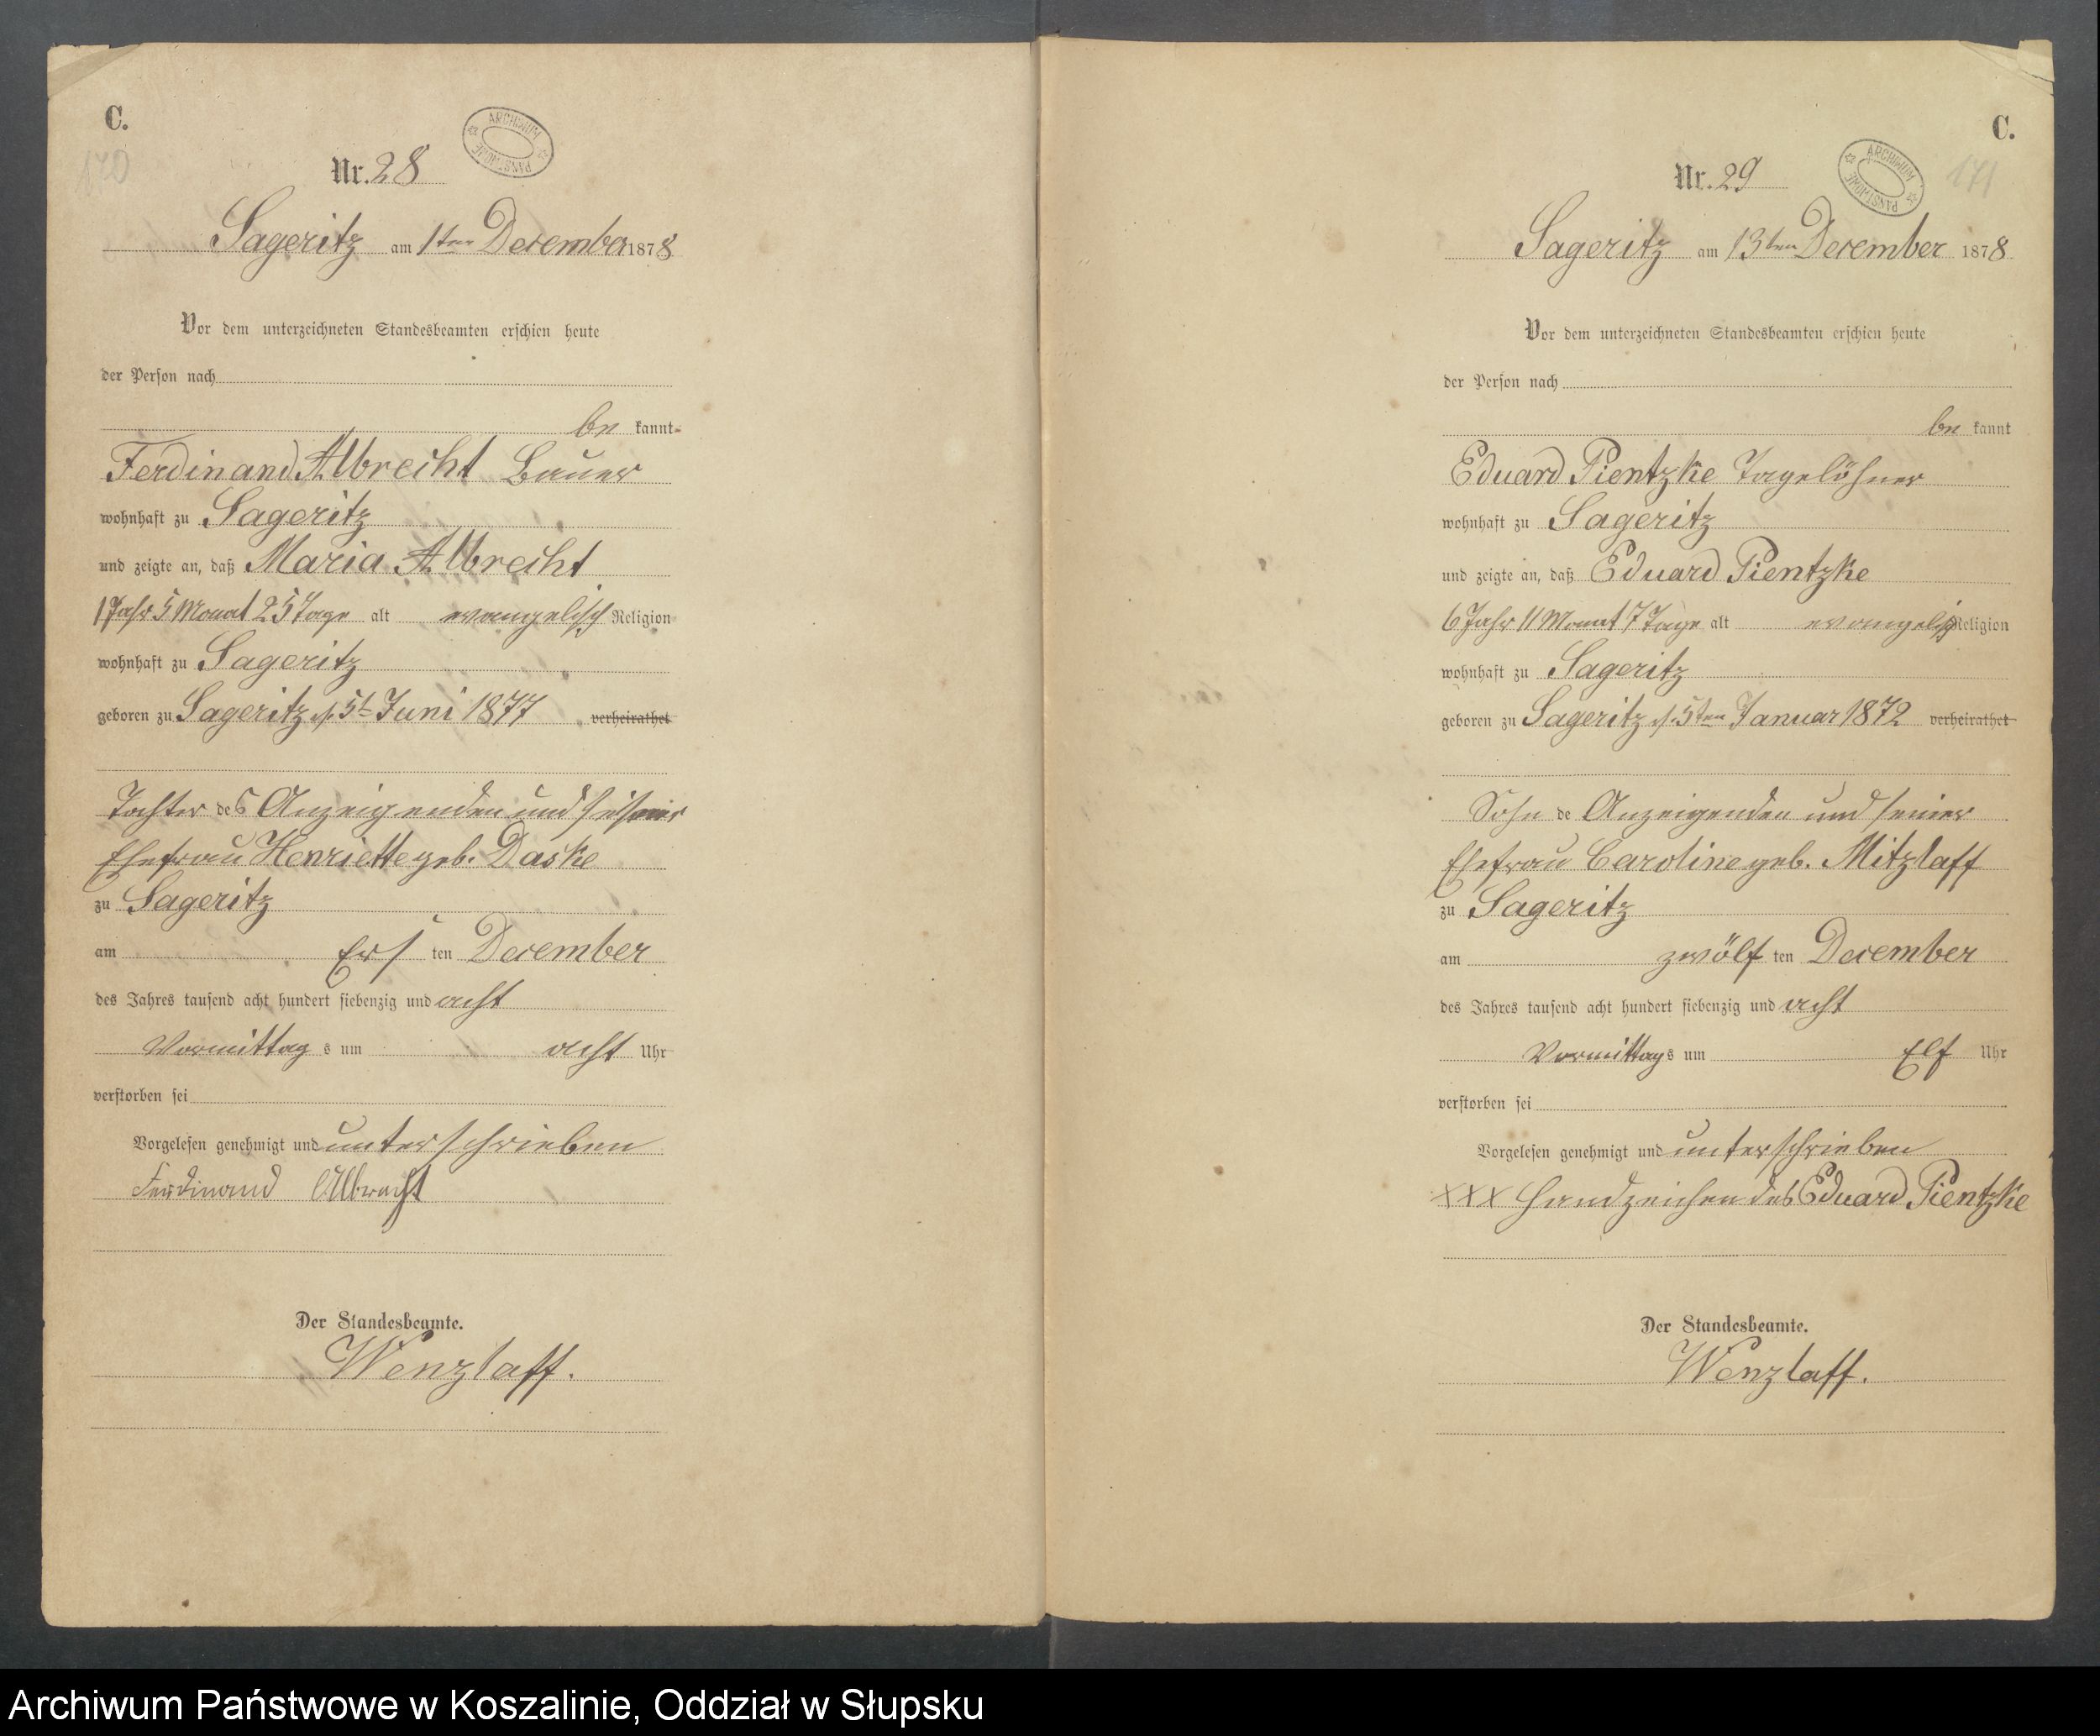 C.
170
Nr. 28
ARCHIWUM PAŃSTWOWE
Sageritz am 1ten December 1878
Vor dem unterzeichneten Standesbeamten erschien heute
der Person nach
be kannt-
Ferdinand Albrecht Bauer
wohnhaft zu Sageritz
und zeigte an, daß Maria Albrecht
1 Jahr 5 Monat 25 Tage alt evangelisch Religion
wohnhaft zu Sageritz
geboren zu Sageritz d. 5t Juni 1877 verheirathet
Tochter des Anzeigenden und seiner
Ehefrau Henriette geb. Daske
zu Sageritz
am Ers ten December
des Jahres tausend acht hundert siebenzig und acht
Vormittag s um acht Uhr
verstorben sei
Vorgelesen genehmigt und unterschrieben
Ferdinand Albrecht
Der Standesbeamte.
Wenzlaff.
C.
171
Nr. 29
ARCHIWUM PAŃSTWOWE
Sageritz am 13ten December 1878
Vor dem unterzeichneten Standesbeamten erschien heute
der Person nach
be kannt
Eduard Pientzke Tagelöhner
wohnhaft zu Sageritz
und zeigte an, daß Eduard Pientzke
6 Jahr 11 Monat 7 Tage alt evangelisch Religion
wohnhaft zu Sageritz
geboren zu Sageritz d. 5ten Januar 1872 verheirathet
Sohn de Anzeigenden und seiner
Ehefrau Caroline geb. Mitzlaff
zu Sageritz
am zwölf ten December
des Jahres tausend acht hundert siebenzig und acht
Vormittags um Elf Uhr
verstorben sei
Vorgelesen genehmigt und unterschrieben
XXX Handzeichen des Eduard Pientzke
Der Standesbeamte.
Wenzlaff.
Archiwum Państwowe w Koszalinie, Oddział w Słupsku